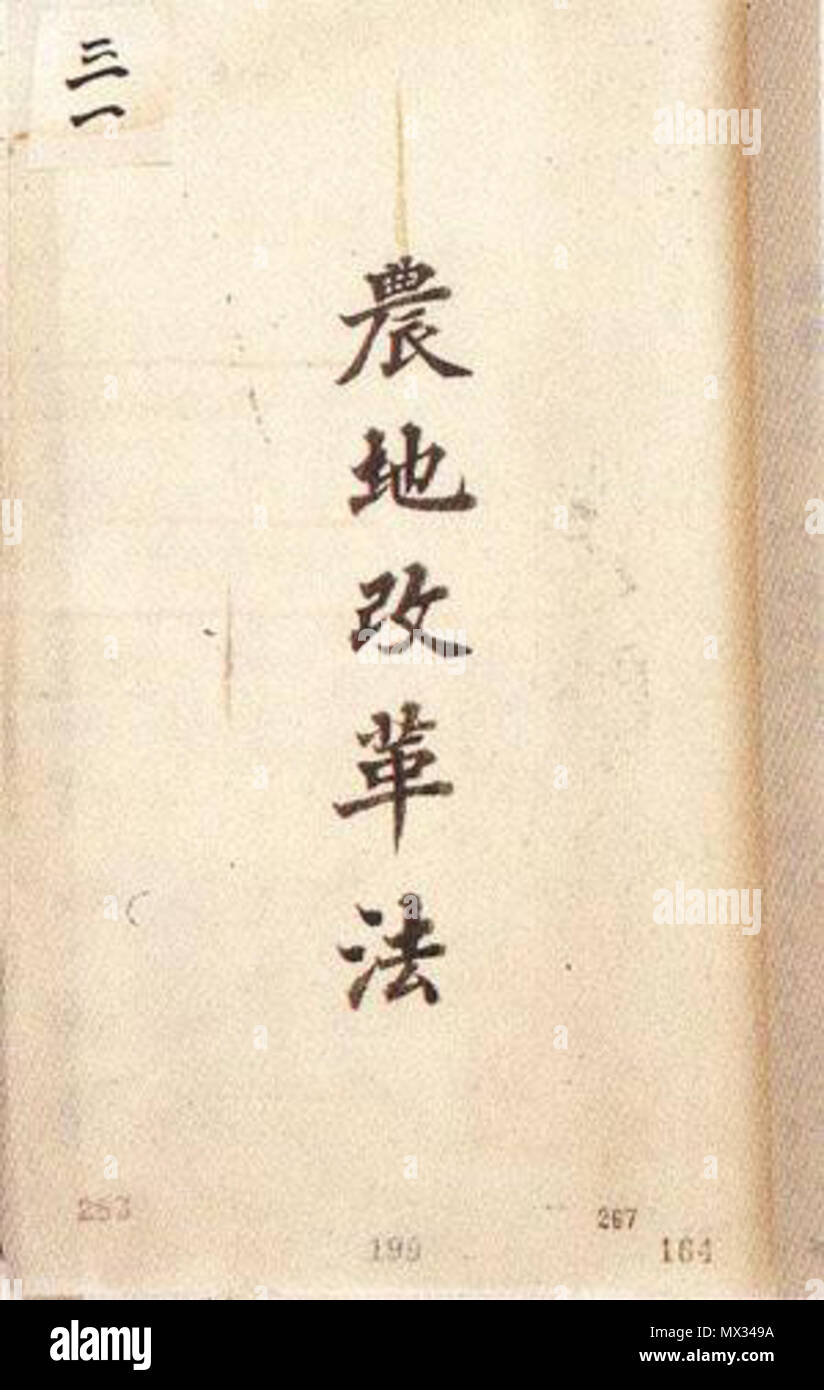 三一
農地改革法
267
199
164
alamy
alamy
alamy
Image ID: MX349A
www.alamy.com